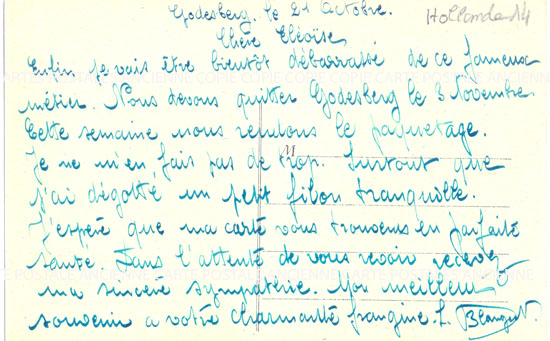 Godesberg. le 21 Octobre.
Hollande 14
Chère Eléoïse
Enfin je vais être bientôt débarrassé de ce fameux
métier. Nous devons quitter Godesberg le 3 Novembre
Cette semaine nous rendons le paquetage.
Je ne m'en fais pas de trop. Surtout que
j'ai dégotté un petit filon tranquille.
J'espère que ma carte vous trouvera en parfaite
santé. Dans l'attente de vous revoir recevez
ma sincère sympathie. Mon meilleur
souvenir a votre charmante frangine. L.